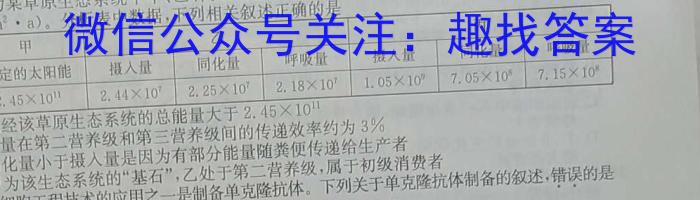 为某草原生态系统中
²·a)。 表中数据,下列相关叙述正确的是
微信公众号关注:趣找答案
甲
定的太阳能 摄入量 同化量 呼吸量 摄入量
2.45×10¹¹ 2.44×10⁷ 2.25×10⁷ 2.18×10⁷ 1.05×10⁹ 7.05×10⁸ 7.15×10⁸
经该草原生态系统的总能量大于 2.45×10¹¹
量在第二营养级和第三营养级间的传递效率约为 3%
化量小于摄入量是因为有部分能量随粪便传递给生产者
为该生态系统的“基石”,乙处于第二营养级,属于初级消费者
细胞工程技术的应用之一是制备单克隆抗体。下列关于单克隆抗体制备的叙述,错误的是